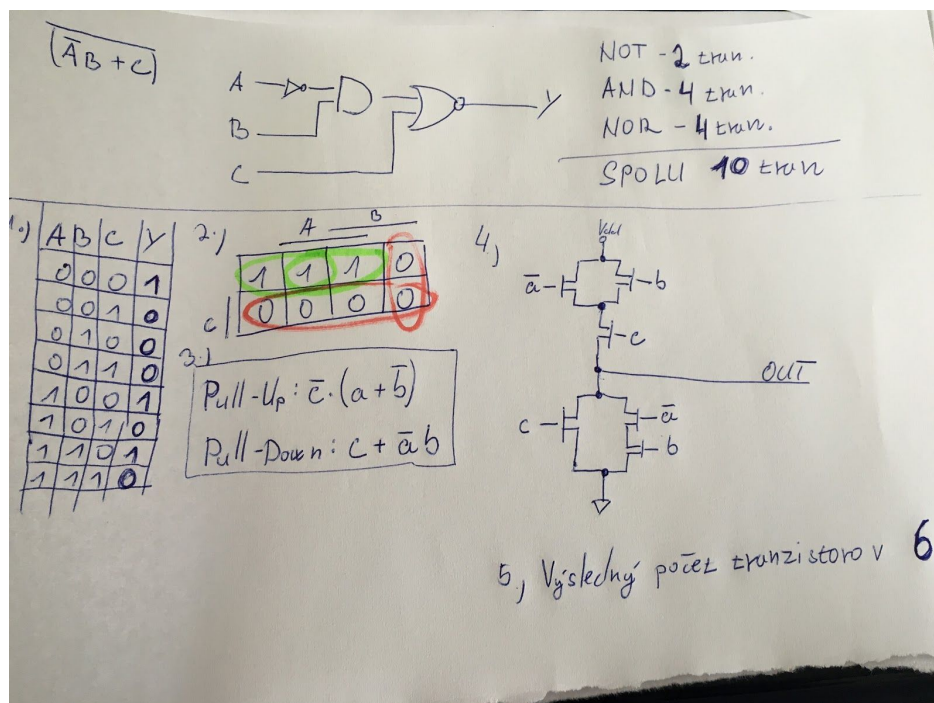 (A̅B + C)̅
A
B
C
Y
NOT - 2 tran.
AND - 4 tran.
NOR - 4 tran.
SPOLU 10 tran
1.)
A B C Y
0 0 0 1
0 0 1 0
0 1 0 0
0 1 1 0
1 0 0 1
1 0 1 0
1 1 0 1
1 1 1 0
2.)
A B
1 1 1 0
C 0 0 0 0
3.)
Pull-Up: c̅·(a+b̅)
Pull-Down: c + a̅b
4,
Vdd
a̅ b
c
OUT
c a̅
b
5, Výsledný počet tranzistorov 6